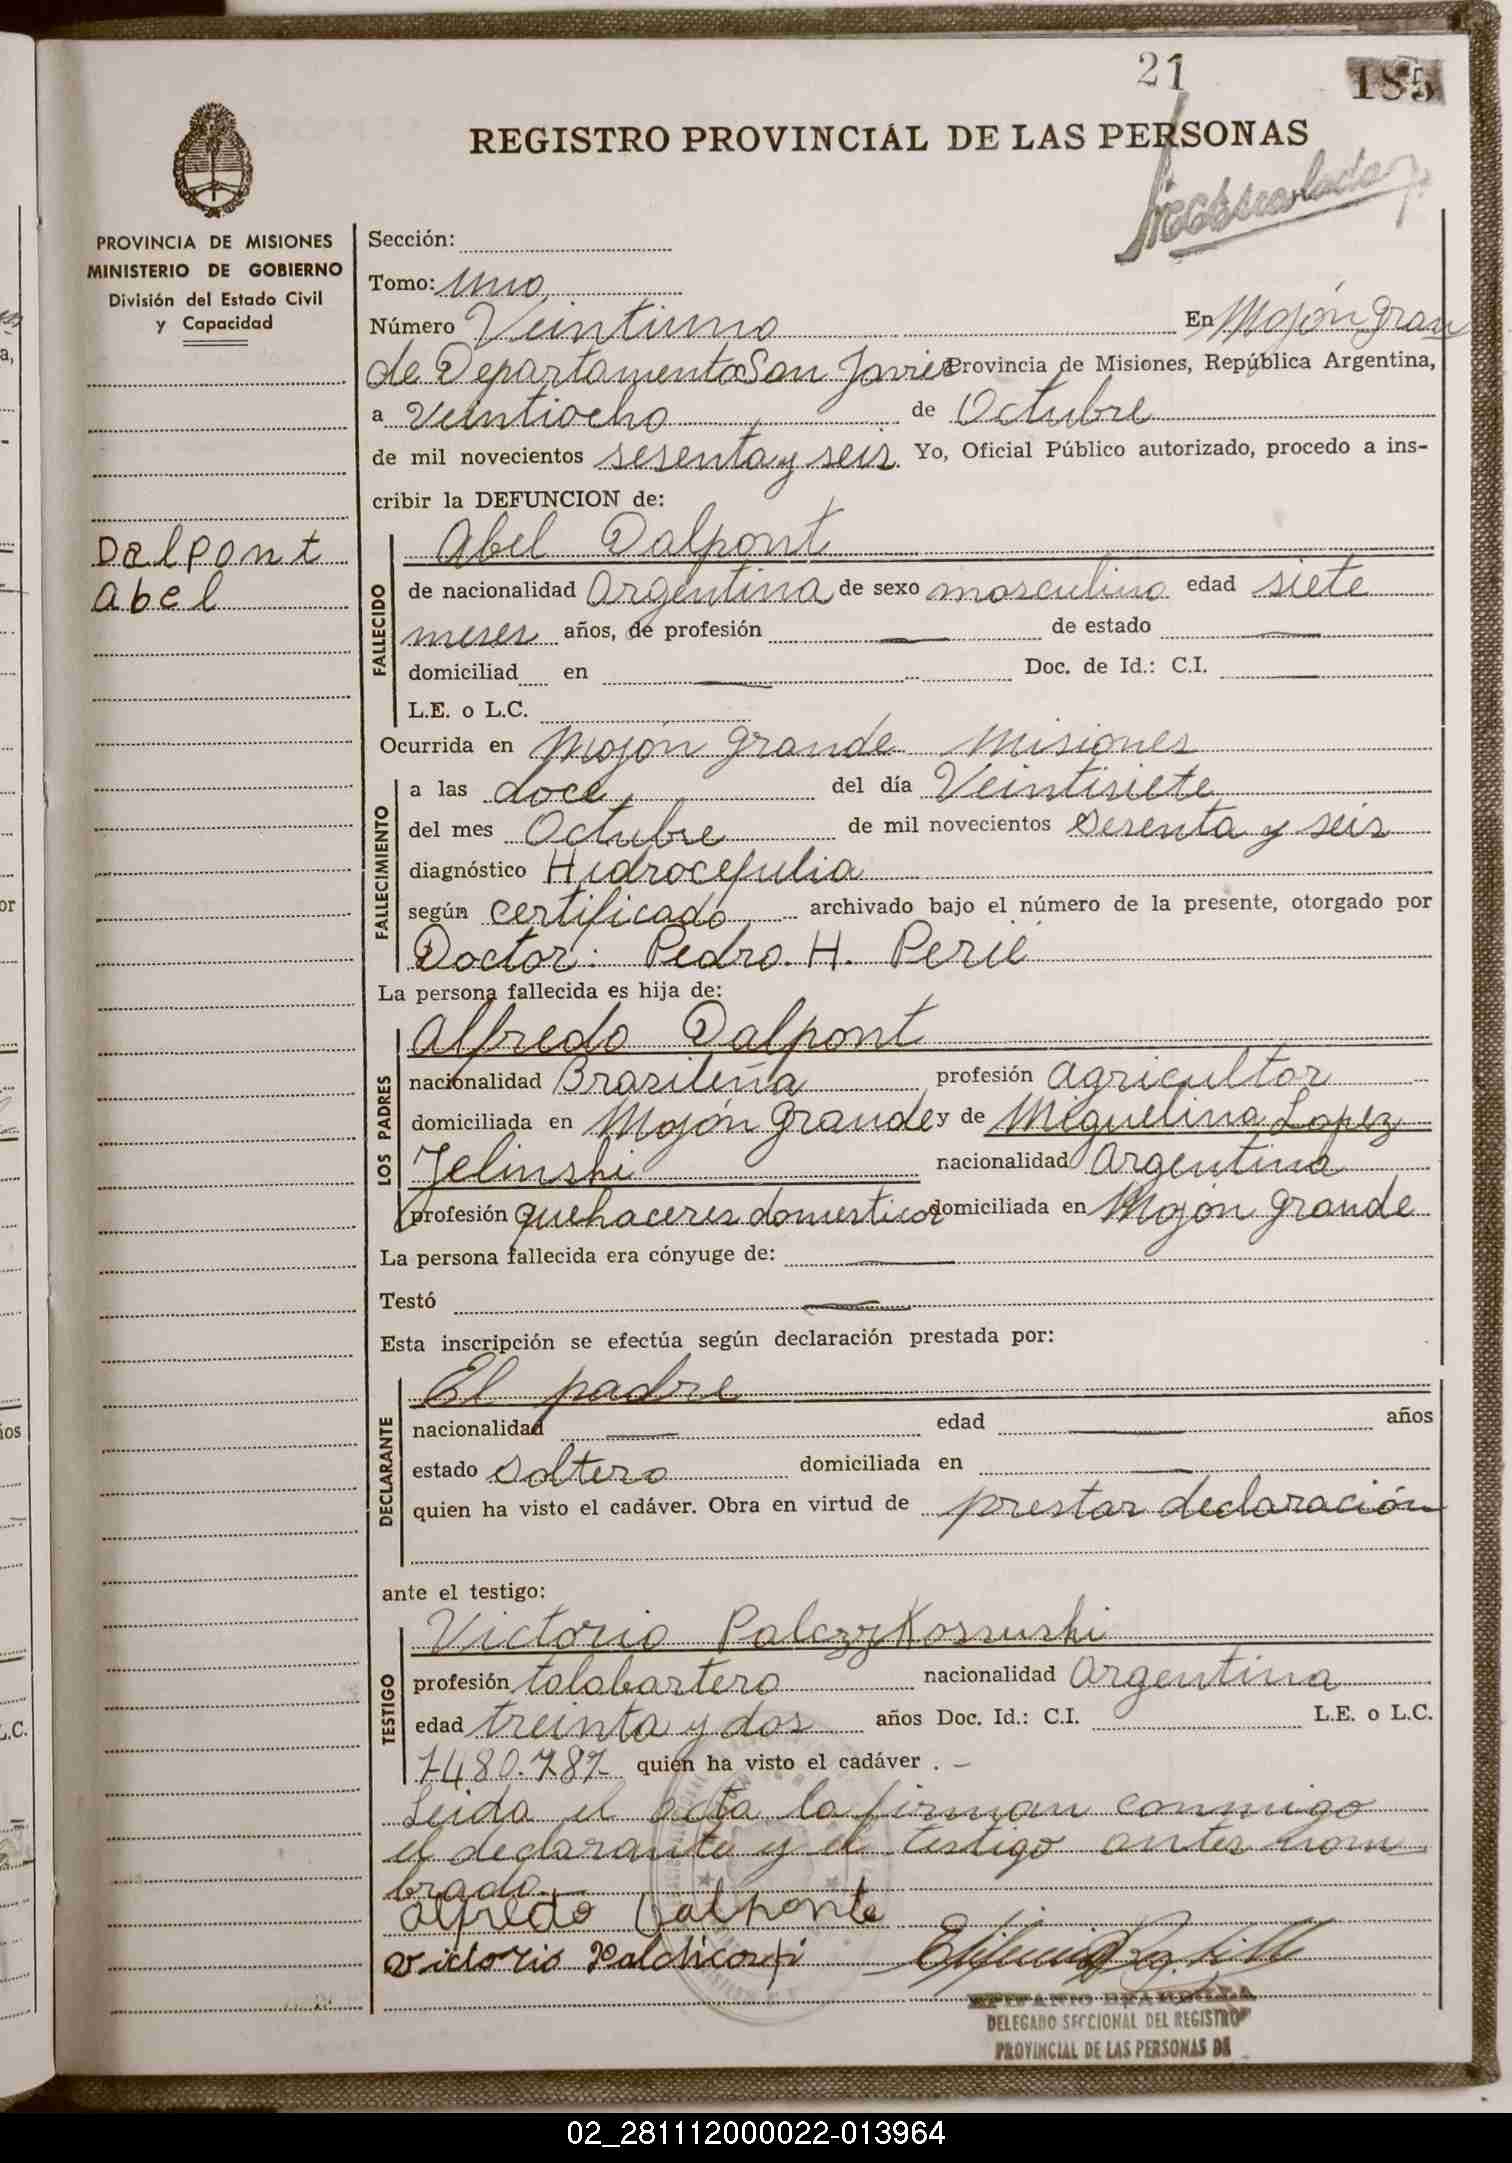 21
185
REGISTRO PROVINCIAL DE LAS PERSONAS
PROVINCIA DE MISIONES
MINISTERIO DE GOBIERNO
División del Estado Civil
y Capacidad
Dalpont
Abel
Sección:
Tomo: uno
Número Veintiuno En Mojón Gran
de Departamento San Javier Provincia de Misiones, República Argentina,
a Veintiocho de Octubre
de mil novecientos sesenta y seis. Yo, Oficial Público autorizado, procedo a ins-
cribir la DEFUNCION de:
FALLECIDO
Abel Dalpont
de nacionalidad Argentina de sexo masculino edad siete
meses años, de profesión — de estado —
domiciliad en — Doc. de Id.: C.I. —
L.E. o L.C.
Ocurrida en Mojón grande Misiones
FALLECIMIENTO
a las doce del día Veintisiete
del mes Octubre de mil novecientos sesenta y seis
diagnóstico Hidrocefulia
según certificado archivado bajo el número de la presente, otorgado por
Doctor: Pedro. H. Perié
La persona fallecida es hija de:
LOS PADRES
Alfredo Dalpont
nacionalidad Brasileña profesión agricultor
domiciliada en Mojón grande y de Miguelina Lopez
Jelinski nacionalidad Argentina
profesión quehaceres domesticos domiciliada en Mojón grande
La persona fallecida era cónyuge de: —
Testó —
Esta inscripción se efectúa según declaración prestada por:
DECLARANTE
El padre
nacionalidad — edad — años
estado soltero domiciliada en —
quien ha visto el cadáver. Obra en virtud de prestar declaración
ante el testigo:
TESTIGO
Victorio
profesión talabartero nacionalidad Argentina
edad treinta y dos años Doc. Id.: C.I. L.E. o L.C.
7480.787 quien ha visto el cadáver . —
Leida el acta la firman conmigo
el declarante y el testigo antes nom
brado.
alfredo Dalponte
Victorio
DELEGADO SECCIONAL DEL REGISTRO
PROVINCIAL DE LAS PERSONAS DE
02_281112000022-013964